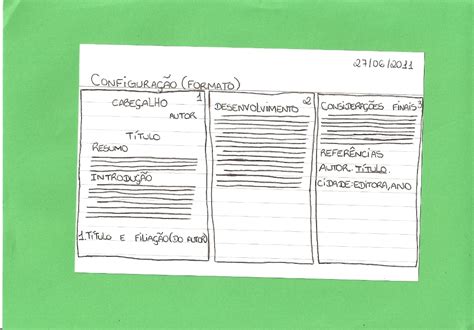 27/06/2011
CONFIGURAÇÃO (FORMATO)
1
CABEÇALHO
AUTOR
TÍTULO
RESUMO
INTRODUÇÃO
1.TÍTULO E FILIAÇÃO(DO AUTOR)
2
DESENVOLVIMENTO
3
CONSIDERAÇÕES FINAIS
REFERÊNCIAS
AUTOR. TÍTULO.
CIDADE:EDITORA, ANO